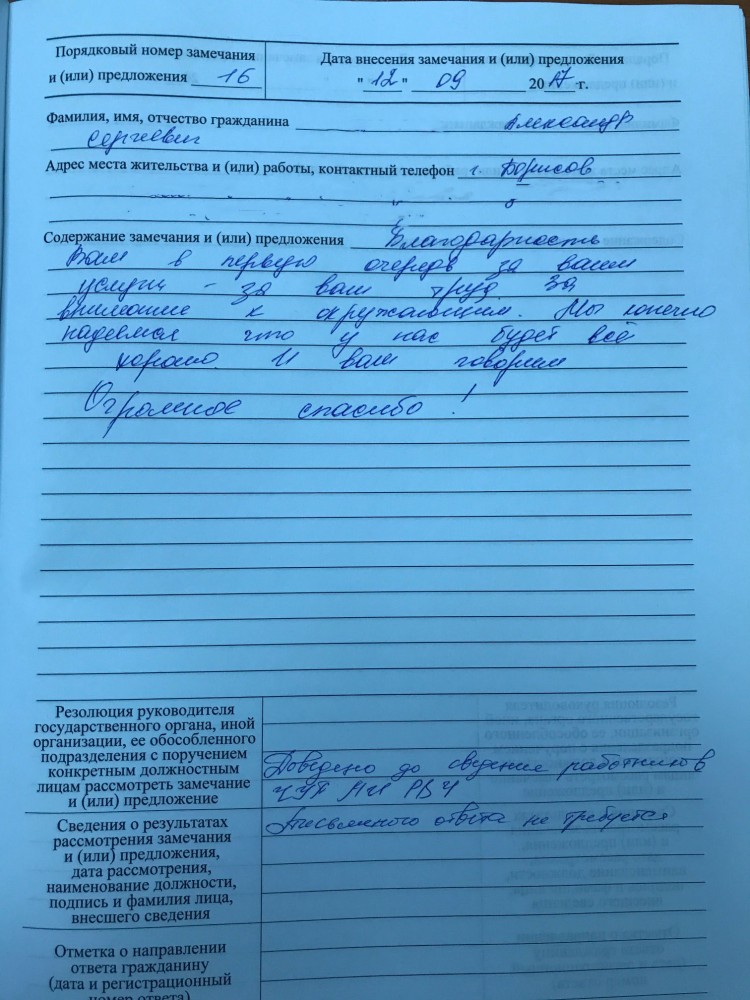 Порядковый номер замечания
и (или) предложения 16
Дата внесения замечания и (или) предложения
" 12 " 09 2017 г.
Фамилия, имя, отчество гражданина Александр
Сергеевич
Адрес места жительства и (или) работы, контактный телефон г. Борисов
Содержание замечания и (или) предложения Благодарность
Вам в первую очередь за ваши
услуги - за ваш труд за
внимание к окружающим. Мы конечно
надеемся что у нас будет всё
хорошо. И вам говорим
Огромное спасибо!
Резолюция руководителя
государственного органа, иной
организации, ее обособленного
подразделения с поручением
конкретным должностным
лицам рассмотреть замечание
и (или) предложение
Доведено до сведение работников
Сведения о результатах
рассмотрения замечания
и (или) предложения,
дата рассмотрения,
наименование должности,
подпись и фамилия лица,
внесшего сведения
Письменного ответа не требуется
Отметка о направлении
ответа гражданину
(дата и регистрационный
номер ответа)